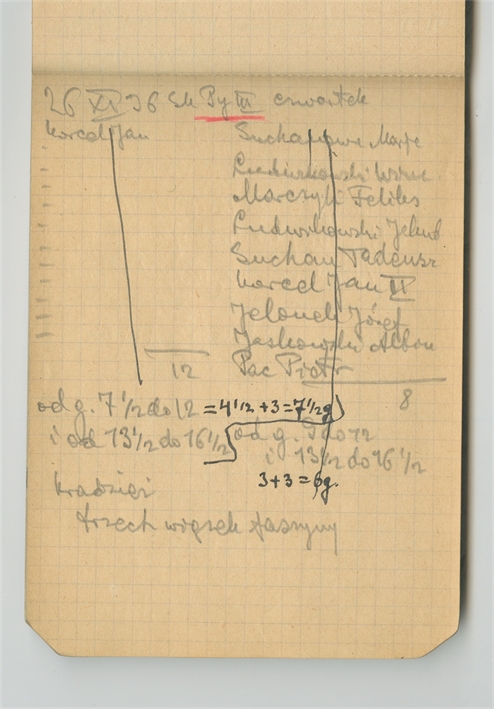 26 XI 36 Sk Py III czwartek
Korcel Jan
Suchanowa Marja
Ludwikowski
Marczyk Feliks
Ludwikowski Jakub
Suchan Tadeusz
Korcel Jan II
Jelonek Józef
Jaskowski Albin
Pac Piotr
12
8
od g. 7 1/2 do 12 = 4 1/2 + 3 = 7 1/2 g
i od 13 1/2 do 16 1/2
od g. 9 do 12
i 13 1/2 do 16 1/2
3+3=6g.
kradzież
trzech wiązek faszyny